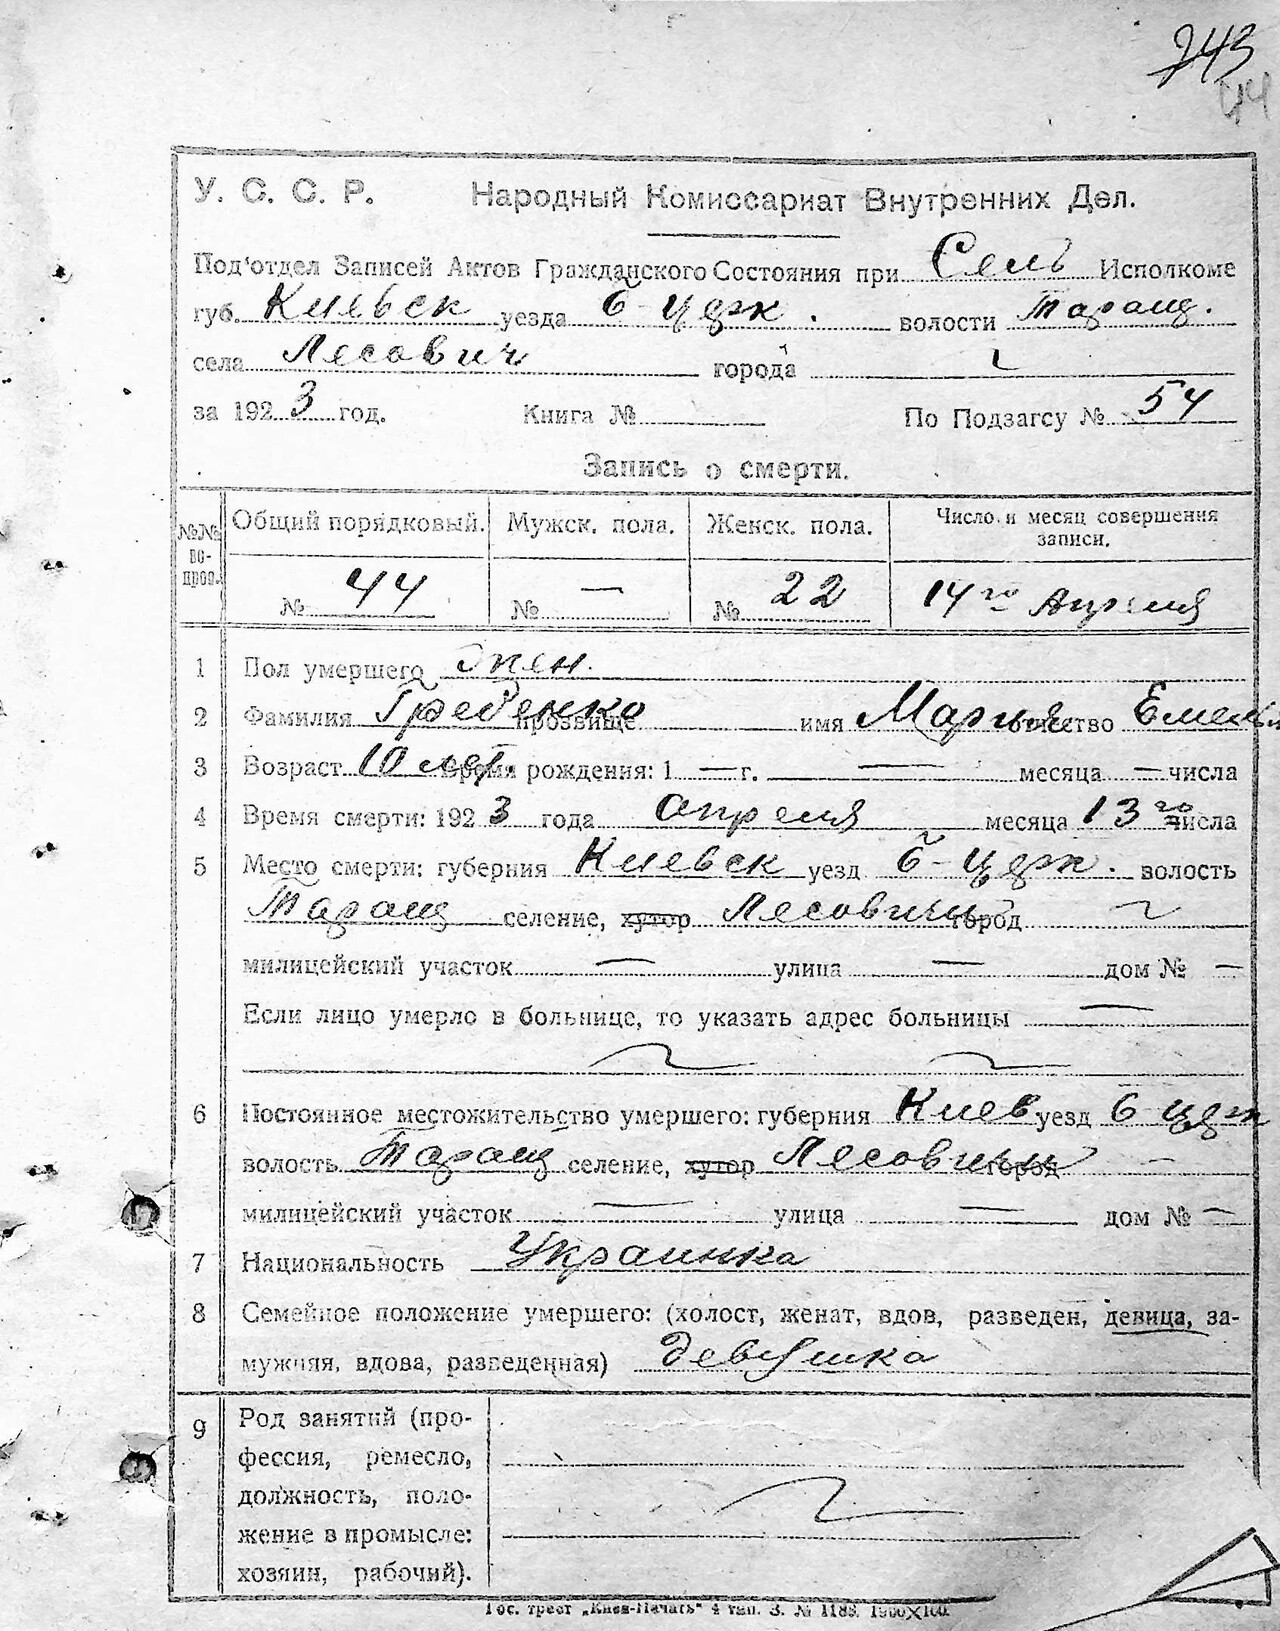 743
44
У. С. С. Р. Народный Комиссариат Внутренних Дел.
Под'отдел Записей Актов Гражданского Состояния при Сель Исполкоме
губ. Киевск уезда Б-Церк. волости Таращ.
села Лесович города
за 1923 год. Книга № По Подзагсу № 54
Запись о смерти.
№№ вопров. Общий порядковый. Мужск. пола. Женск. пола. Число и месяц совершения записи.
№ 44 № — № 22 14го Апреля
1 Пол умершего Жен.
2 Фамилия Гребенко прозвище имя Мария отчество Емельян
3 Возраст 10 лет. Время рождения: 1 — г. — месяца — числа
4 Время смерти: 1923 года апреля месяца 13го числа
5 Место смерти: губерния Киевск уезд Б-Церк. волость
Таращ селение, хутор Лесовичи город
милицейский участок — улица — дом № —
Если лицо умерло в больнице, то указать адрес больницы —
6 Постоянное местожительство умершего: губерния Киев уезд Б Церк
волость Таращ селение, хутор Лесовичи город —
милицейский участок — улица — дом № —
7 Национальность Украинка
8 Семейное положение умершего: (холост, женат, вдов, разведен, девица, за-
мужняя, вдова, разведенная) девушка
9 Род занятий (про-
фессия, ремесло,
должность, поло-
жение в промысле:
хозяин, рабочий).
Гос. трест „Киев-Печать" 4 тип. З. № 1183. 1900X100.